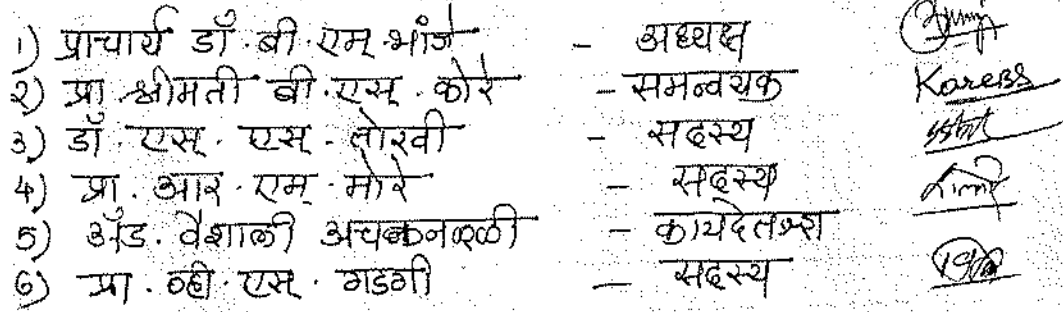 १) प्राचार्य डॉ. बी. एम. भांजे - अध्यक्ष
२) प्रा. श्रीमती बी. एस्. कोरे - समन्वयक KoreBS
३) डॉ. एस्. एस्. तोरवी - सदस्य
४) प्रा. आर. एम्. मोरे - सदस्य
५) अ‍ॅड. वैशाली - कायदेतज्ञ
६) प्रा. व्ही. एस्. गडगी - सदस्य